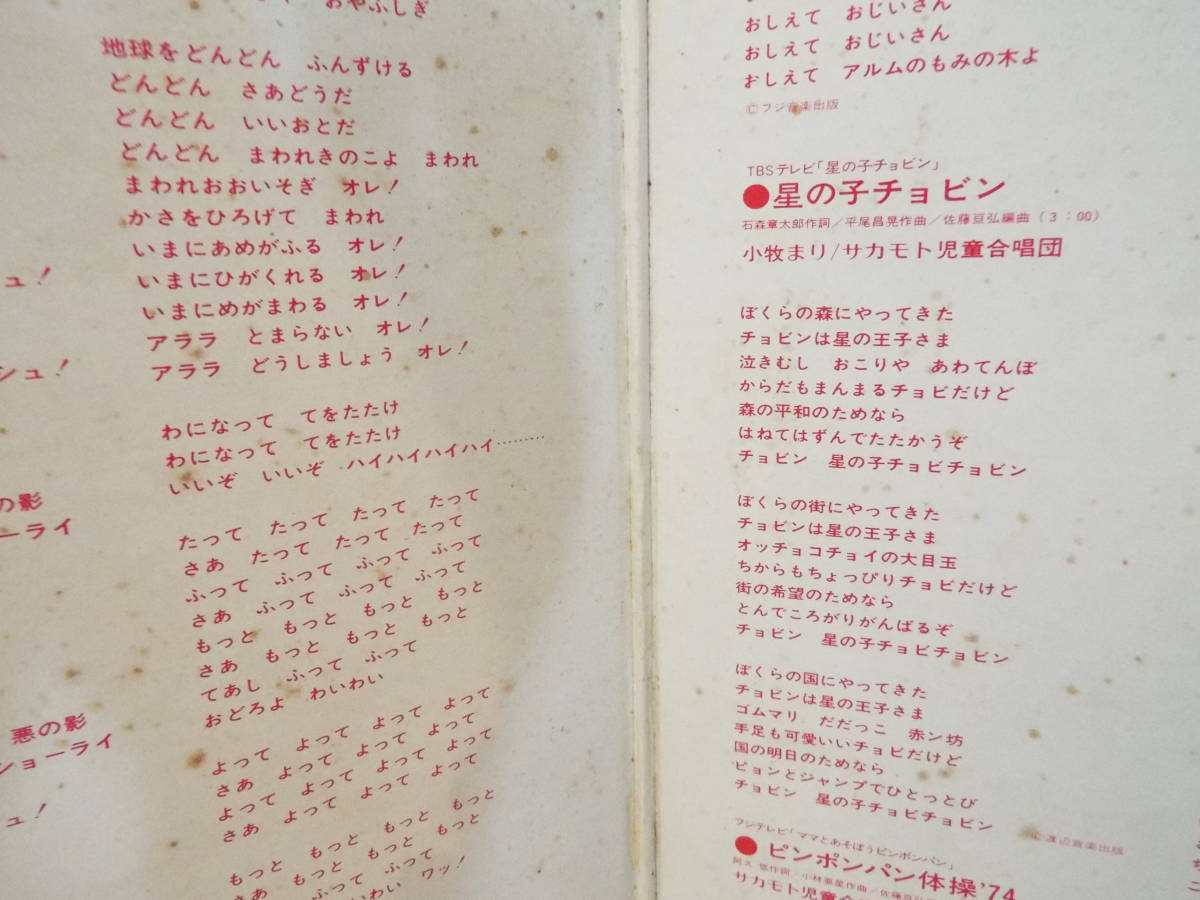 おやふしぎ
地球をどんどん ふんずける
どんどん さあどうだ
どんどん いいおとだ
どんどん まわれきのこよ まわれ
まわれおおいそぎ オレ!
かさをひろげて まわれ
いまにあめがふる オレ!
いまにひがくれる オレ!
いまにめがまわる オレ!
アララ とまらない オレ!
アララ どうしましょう オレ!
わになって てをたたけ
わになって てをたたけ
いいぞ いいぞ ハイハイハイハイ………
たって たって たって たって
さあ たって たって たって
ふって ふって ふって ふって
さあ ふって ふって ふって
もっと もっと もっと もっと
さあ もっと もっと もっと
てあし ふって ふって
おどろよ わいわい
よって よって よって よって
さあ よって よって よって
よって よって よって よって
さあ よって よって よって
もっと もっと もっと もっと
さあ もっと もっと もっと
ふって ふって
わいわい ワッ!
ュ!
シュ!
の影
ーライ
悪の影
ショーライ
ュ!
おしえて おじいさん
おしえて おじいさん
おしえて アルムのもみの木よ
Ⓒフジ音楽出版
TBSテレビ「星の子チョビン」
●星の子チョビン
石森章太郎作詞/平尾昌晃作曲/佐藤亘弘編曲(3:00)
小牧まり/サカモト児童合唱団
ぼくらの森にやってきた
チョビンは星の王子さま
泣きむし おこりや あわてんぼ
からだもまんまるチョビだけど
森の平和のためなら
はねてはずんでたたかうぞ
チョビン 星の子チョビチョビン
ぼくらの街にやってきた
チョビンは星の王子さま
オッチョコチョイの大目玉
ちからもちょっぴりチョビだけど
街の希望のためなら
とんでころがりがんばるぞ
チョビン 星の子チョビチョビン
ぼくらの国にやってきた
チョビンは星の王子さま
ゴムマリ だだっこ 赤ン坊
手足も可愛いいチョビだけど
国の明日のためなら
ピョンとジャンプでひとっとび
チョビン 星の子チョビチョビン
渡辺音楽出版
フジテレビ「ママとあそぼうピンポンパン」
●ピンポンパン体操'74
阿久 悠作詞/小林亜星作曲/佐藤
サカモト児童合